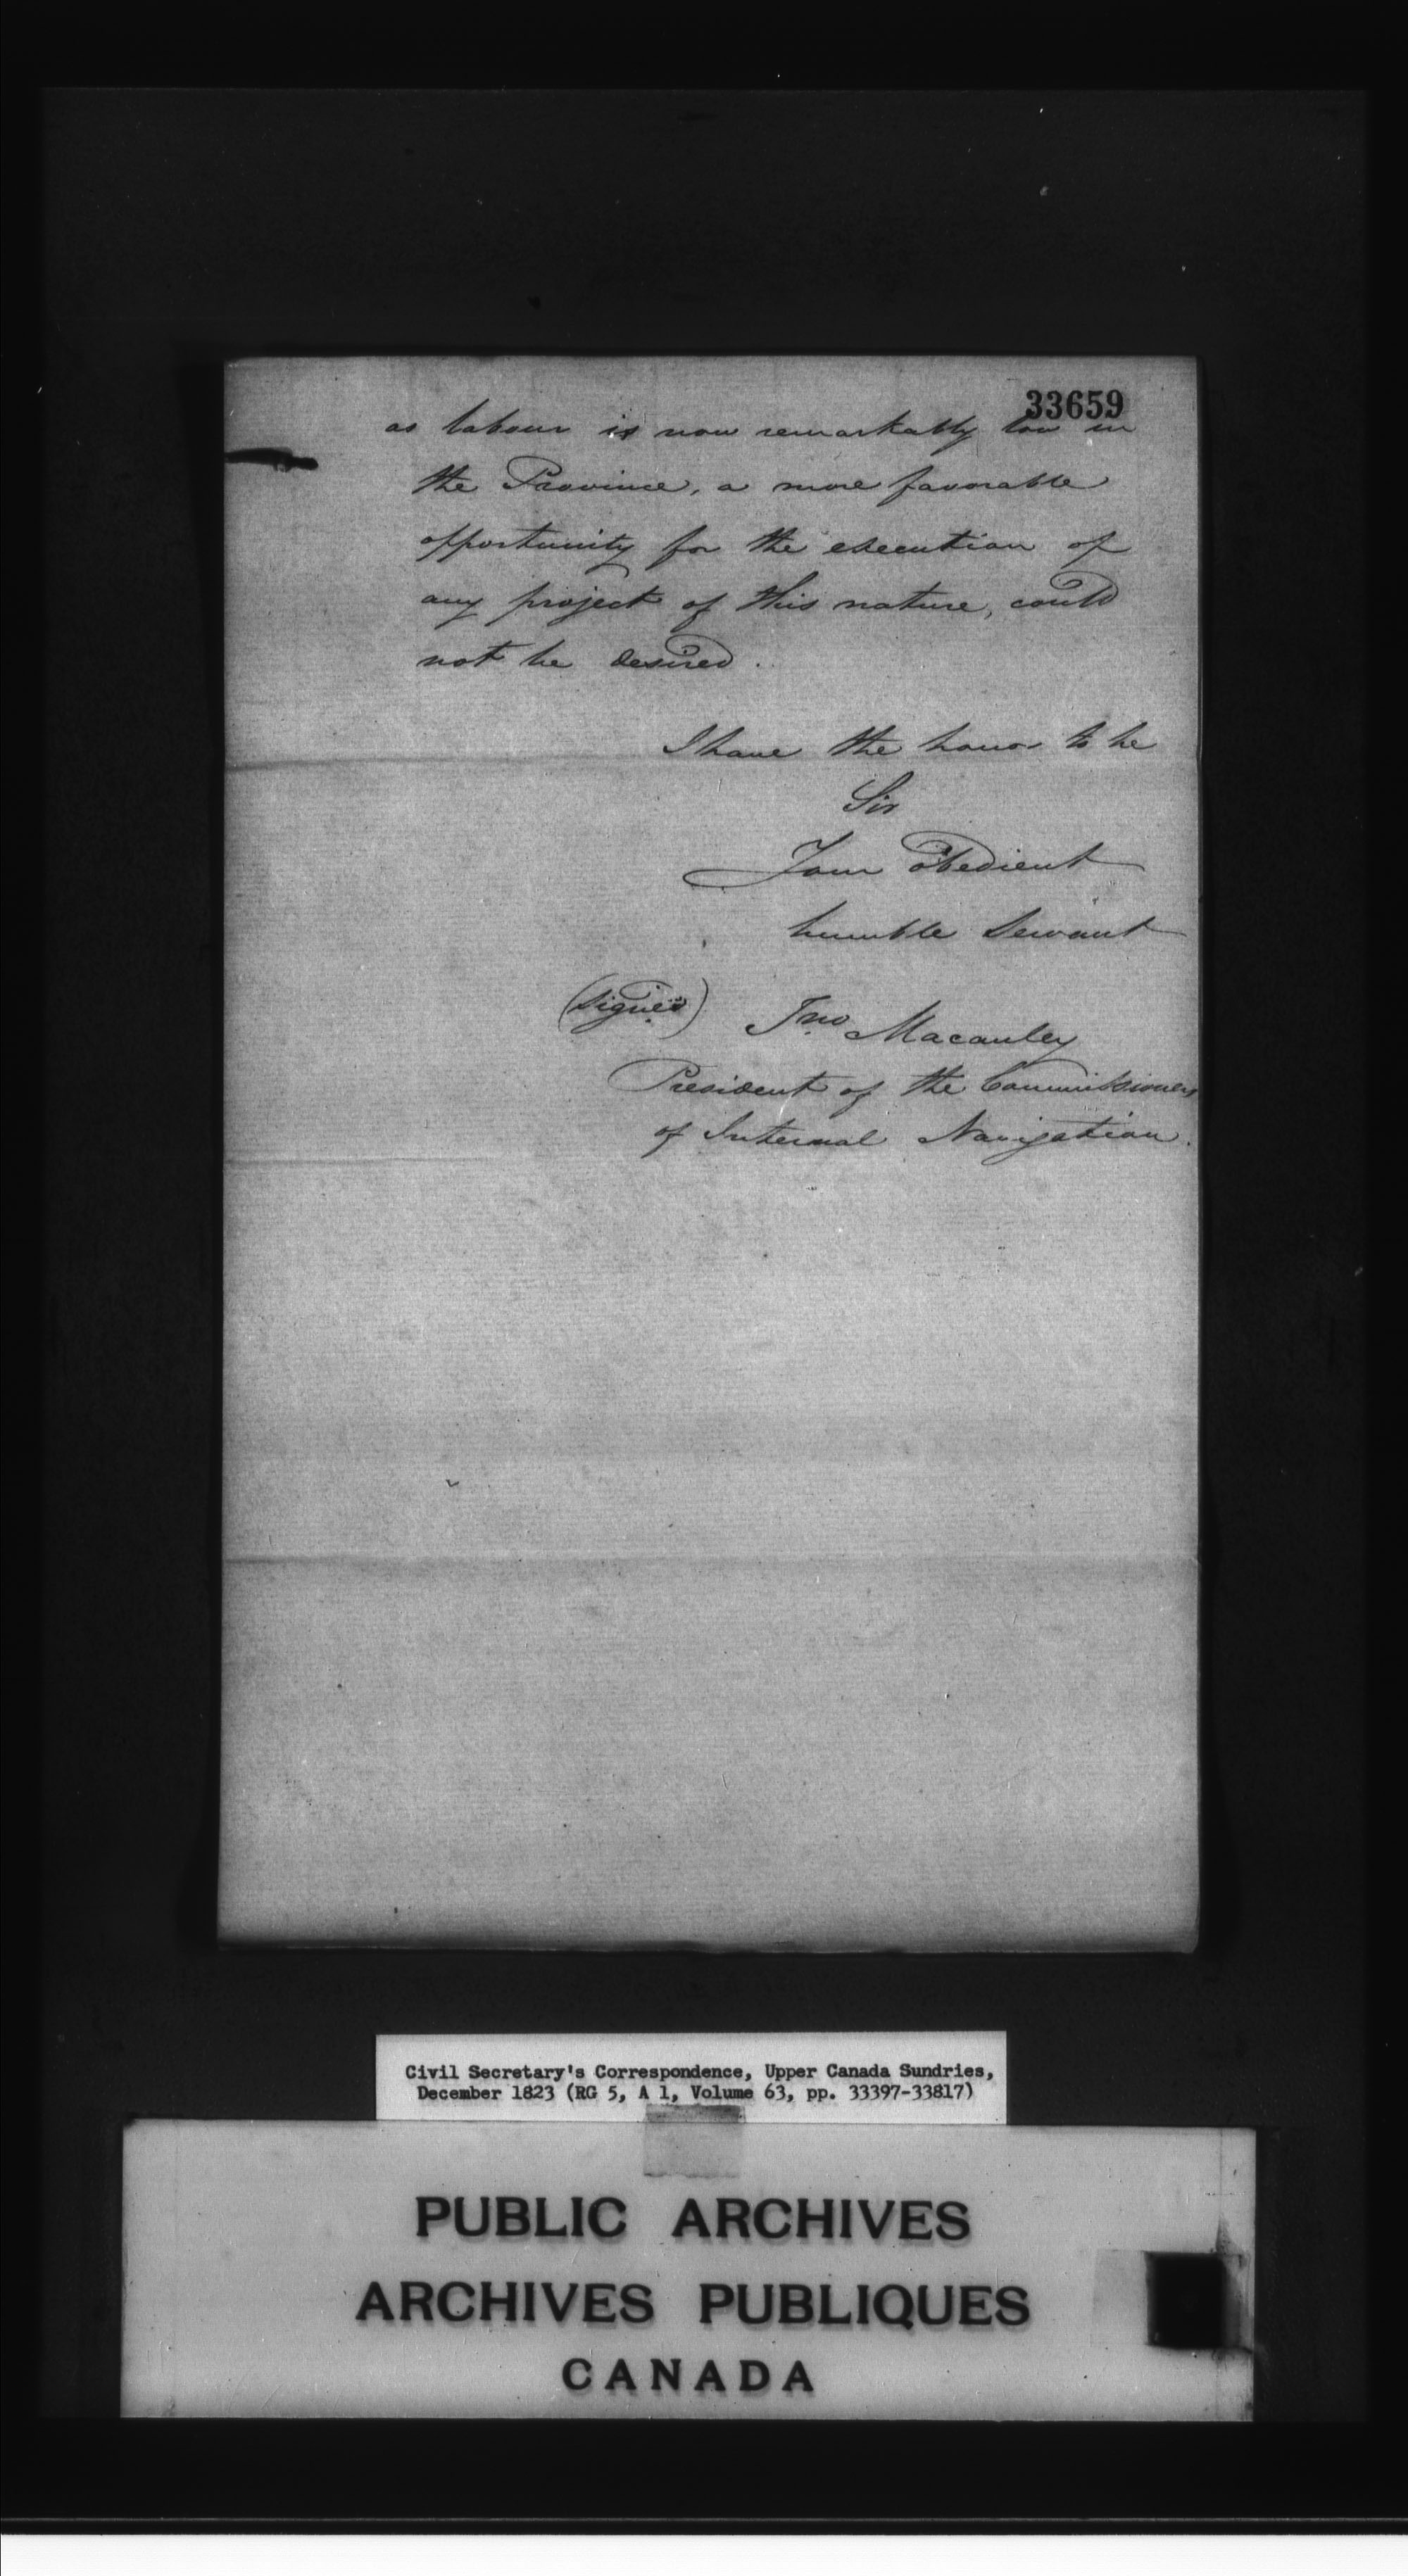 33659
as labour is now remarkably low in
the Province, a more favorable
opportunity for the execution of
any project of this nature, could
not be desired.
I have the honor to be
Sir
Your obedient
humble servant
(signed) Jno Macauley
President of the Commissioners
of Internal Navigation.
Civil Secretary's Correspondence, Upper Canada Sundries,
December 1823 (RG 5, A 1, Volume 63, pp. 33397-33817)
PUBLIC ARCHIVES
ARCHIVES PUBLIQUES
CANADA